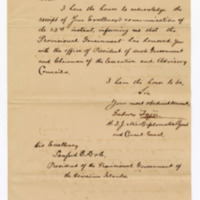 I have the honor to acknowledge the
receipt of Your Excellency's communication of
the 23rd instant, informing me that the
Provisional Government has honored you
with the office of President of said Government
and Chairman of the Executive and Advisory
Councils.
I have the honor to be,
Sir
Your most obedient servant,
H. I. J. M's Diplomatic Agent
and Consul General.
His Excellency
Sanford B. Dole,
President of the Provisional Government of
the Hawaiian Islands